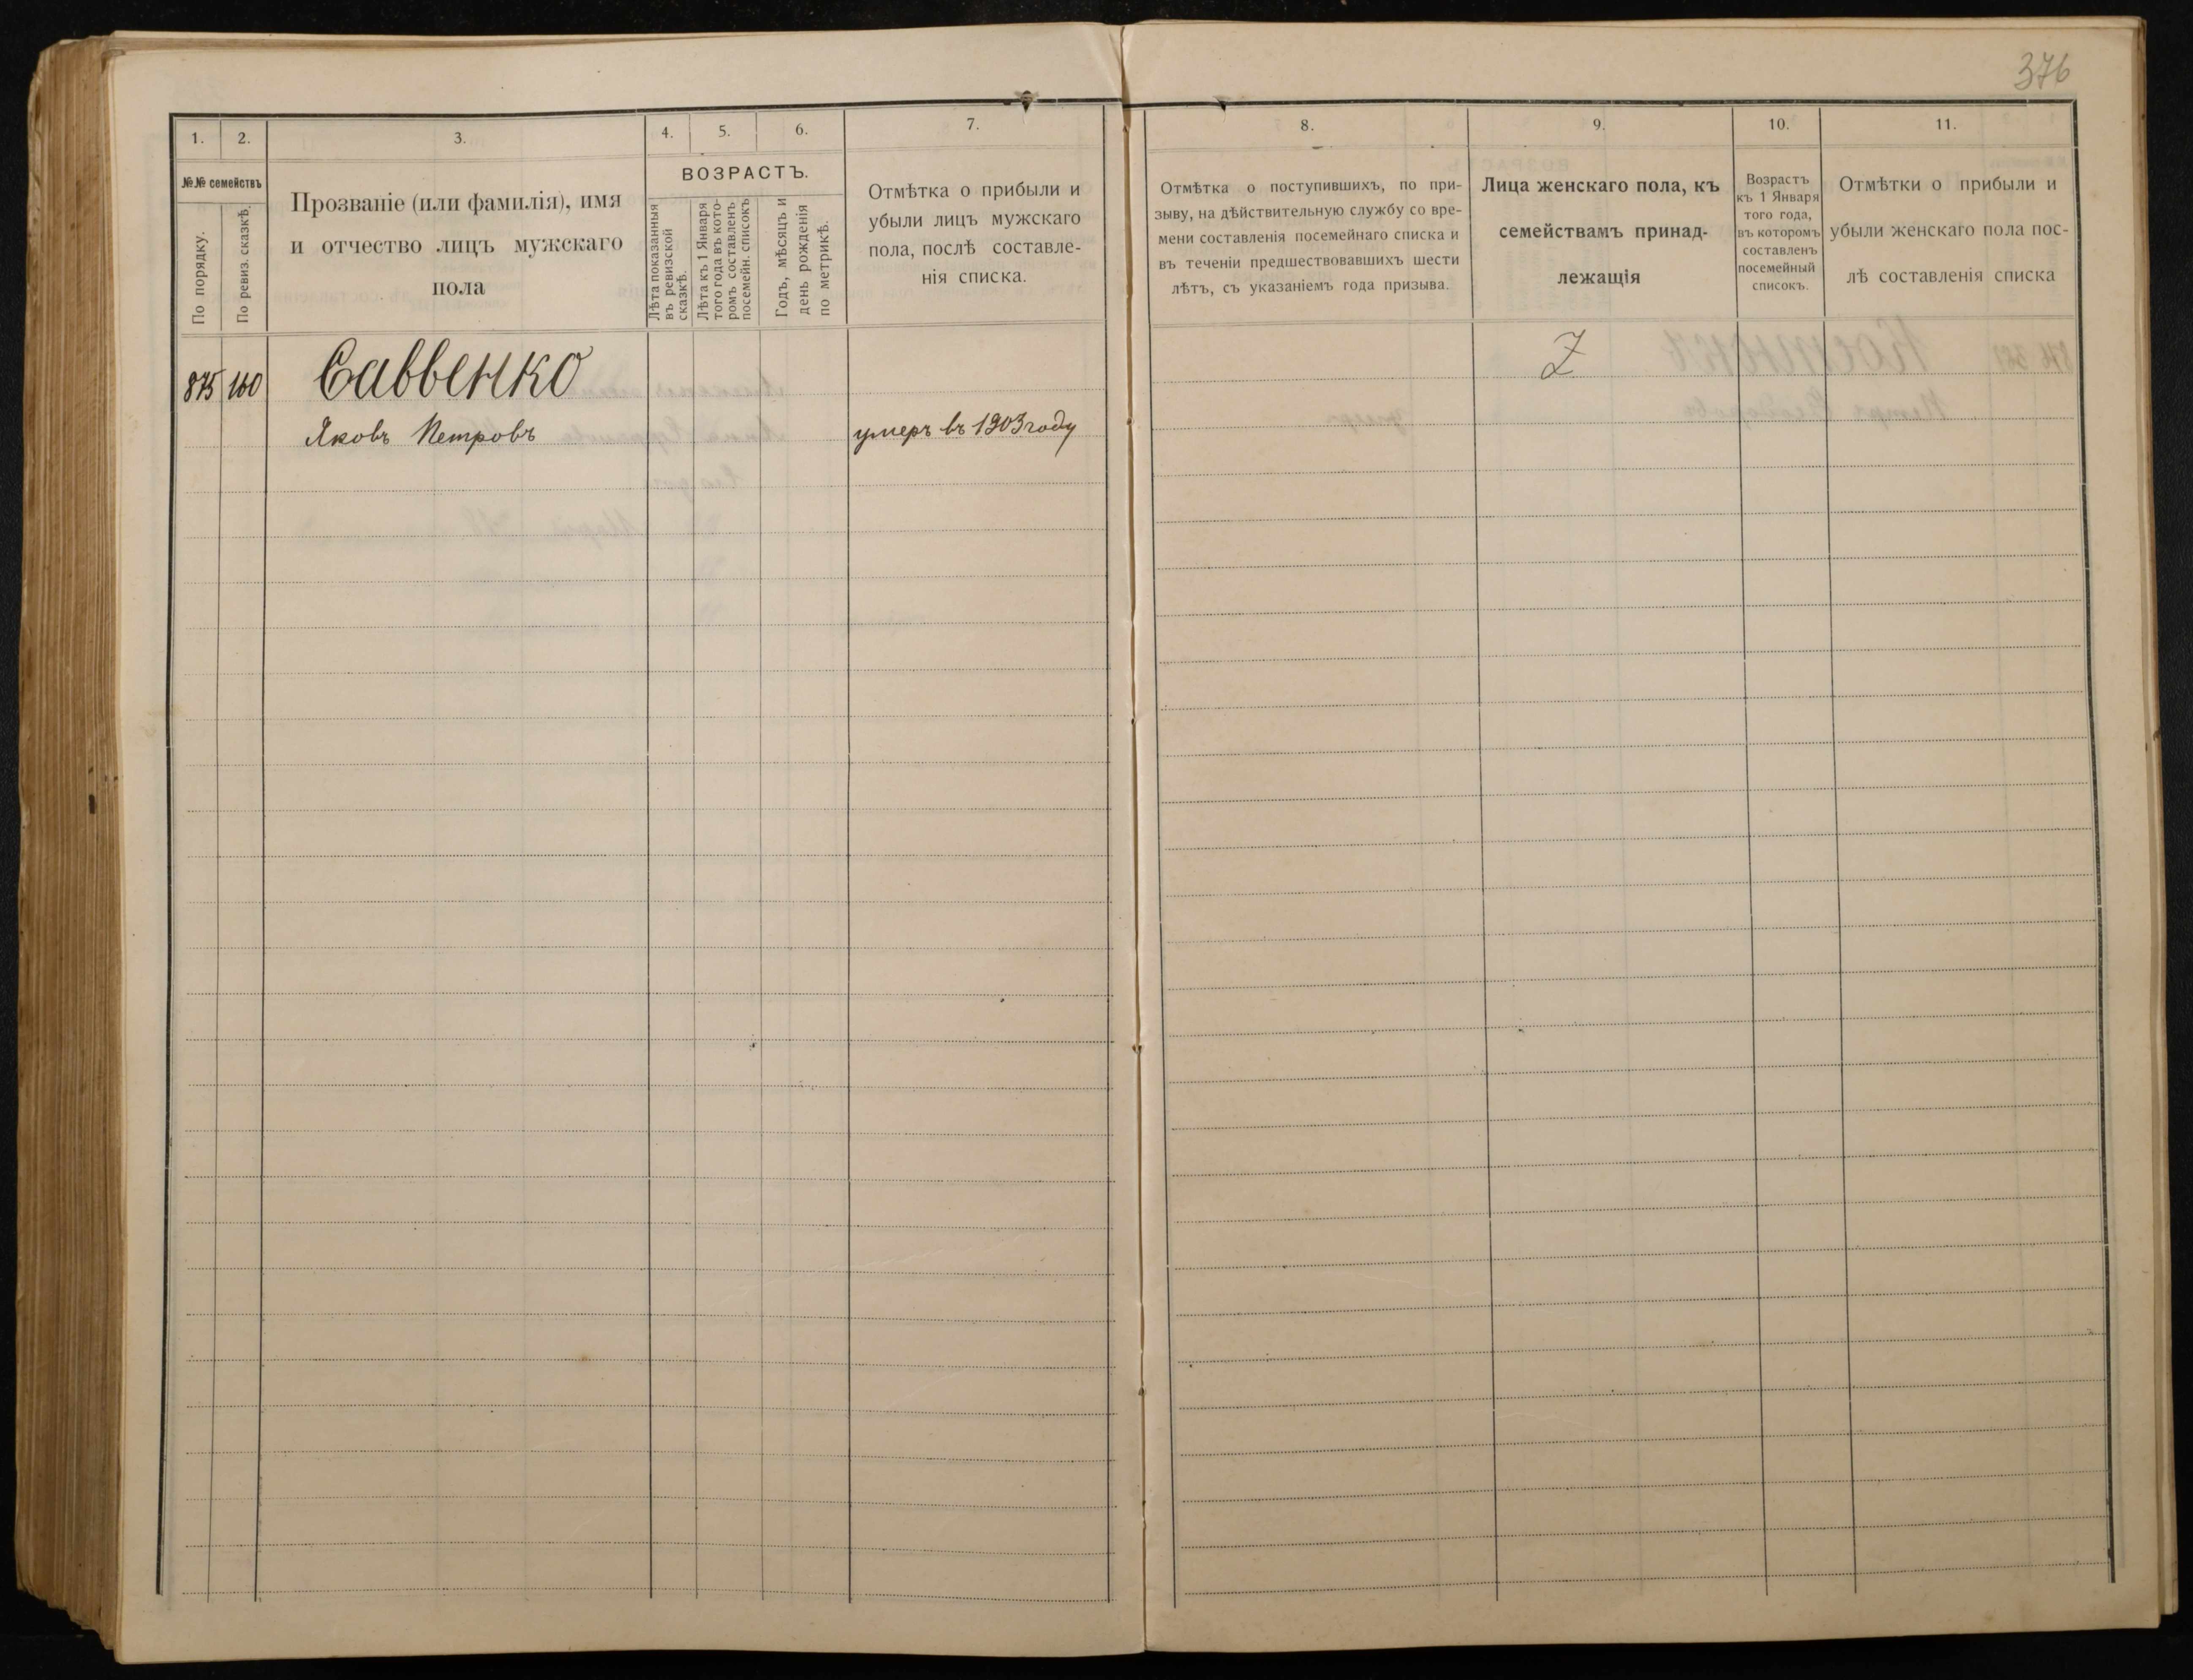 376
1. 2. 3. 4. 5. 6. 7.
№№ семействъ
По порядку.
По ревиз. сказкѣ.
Прозваніе (или фамилія), имя
и отчество лицъ мужскаго
пола
ВОЗРАСТЪ.
Лѣта показанныя
въ ревизской
сказкѣ.
Лѣта къ 1 Января
того года въ кото-
ромъ составленъ
посемейн. списокъ
Годъ, мѣсяцъ и
день рожденія
по метрикѣ.
Отмѣтка о прибыли и
убыли лицъ мужскаго
пола, послѣ составле-
нія списка.
875 160 Саввенко
Яковъ Петровъ умеръ въ 1903 году
8. 9. 10. 11.
Отмѣтка о поступившихъ, по при-
зыву, на дѣйствительную службу со вре-
мени составленія посемейнаго списка и
въ теченіи предшествовавшихъ шести
лѣтъ, съ указаніемъ года призыва.
Лица женскаго пола, къ
семействамъ принад-
лежащія
Возрастъ
къ 1 Января
того года,
въ которомъ
составленъ
посемейный
списокъ.
Отмѣтки о прибыли и
убыли женскаго пола пос-
лѣ составленія списка